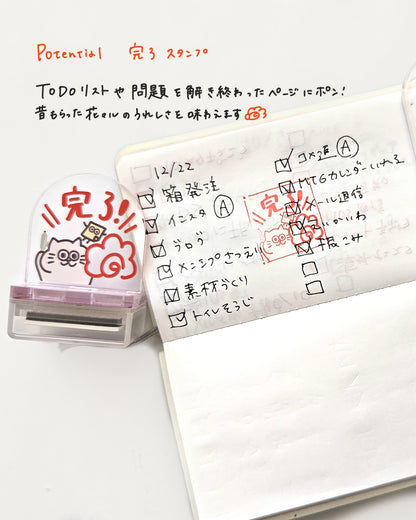 Potential 完了 スタンプ
TODOリストや問題を解き終わったページにポン!
昔もらった花マルのうれしさを味わえます
完了!
12/22
箱発注
インスタ Ⓐ
ブログ
メンシプさつえい
素材づくり
トイレそうじ
コメ返 Ⓐ
MTGカレンダーいれる
メール返信
完